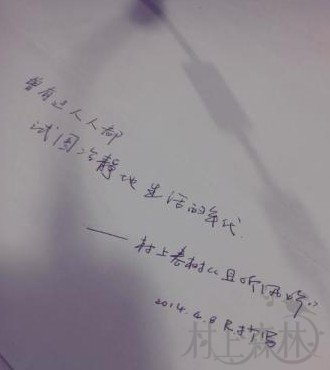 曾有过人人都
试图冷静地生活的年代.
——村上春树《且听风吟》
2014.4.8 R.抄写
村上森林